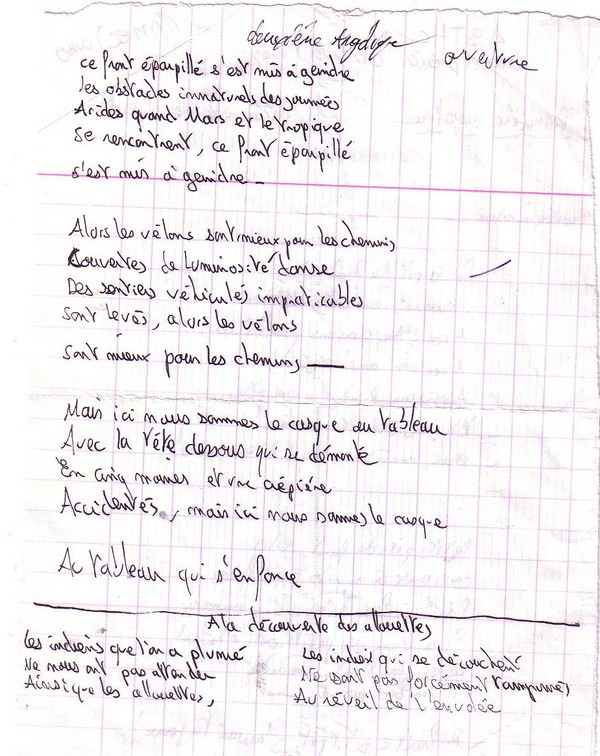 deuxième
ouverture
ce front éparpillé s'est mis à geindre
les obstacles innaturels des journées
Arides quand Mars et le tropique
Se rencontrent, ce front éparpillé
s'est mis à geindre -
Alors les vélons sont mieux pour les chemins
Couvertes de luminosité danse
Des sentiers véhiculés impraticables
Sont levés, alors les vélons
sont mieux pour les chemins —
Mais ici nous sommes le casque au tableau
Avec la tête dessous qui se démonte
En cinq et une
Accidentés, mais ici nous sommes le casque
Au tableau qui s'enfonce
A la découverte des allouettes
Les indiens que l'on a plumé
Ne nous ont pas attendu
Ainsi que les allouettes,
Les index qui se découchent
Ne sont pas forcément
Au réveil de l'envolée